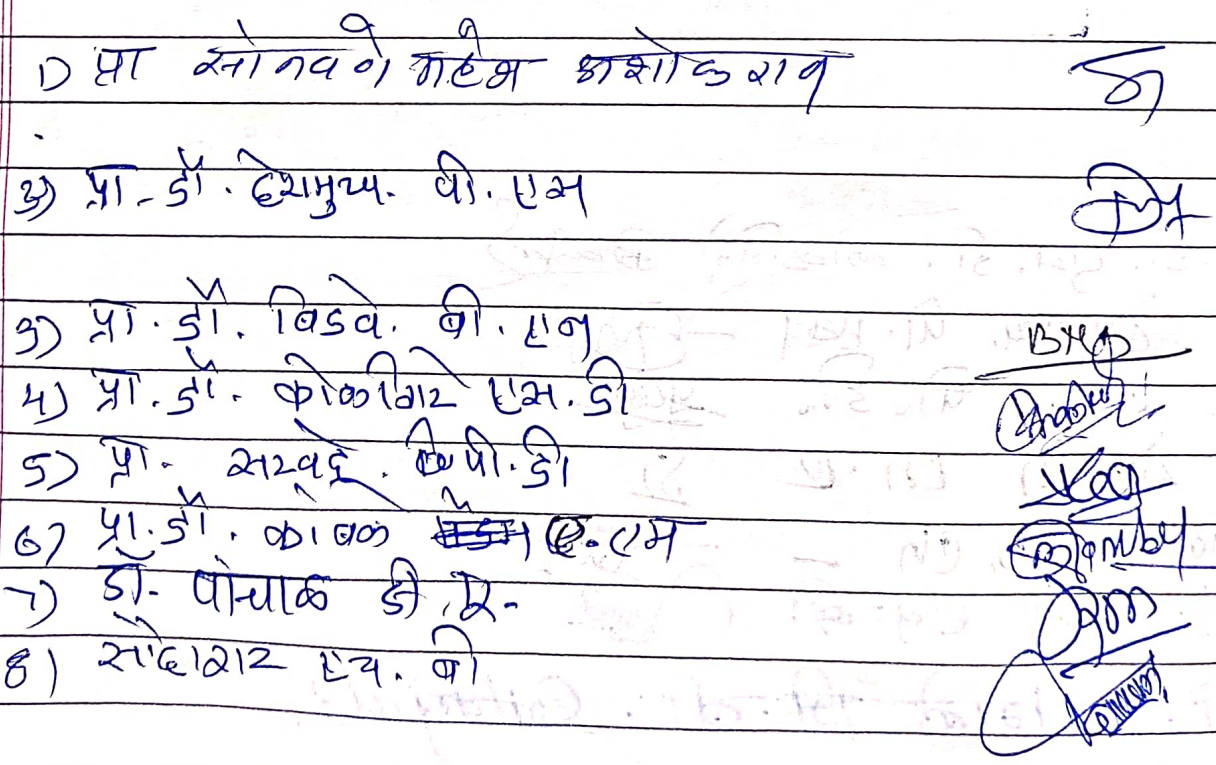 1) प्रा सोनवणे महेश अशोकराव
2) प्रा. डॉ. देशमुख. वी. एस
3) प्रा. डॉ. बिडवे. बी. एन
4) प्रा. डॉ. कोळीगिरे एस. डी
5) प्रा. सरवदे. पी. डी
6) प्रा. डॉ. कांबळे ए. एम
7) डॉ. पांचाळ डी. ए.
8) सौदागर एच. बी